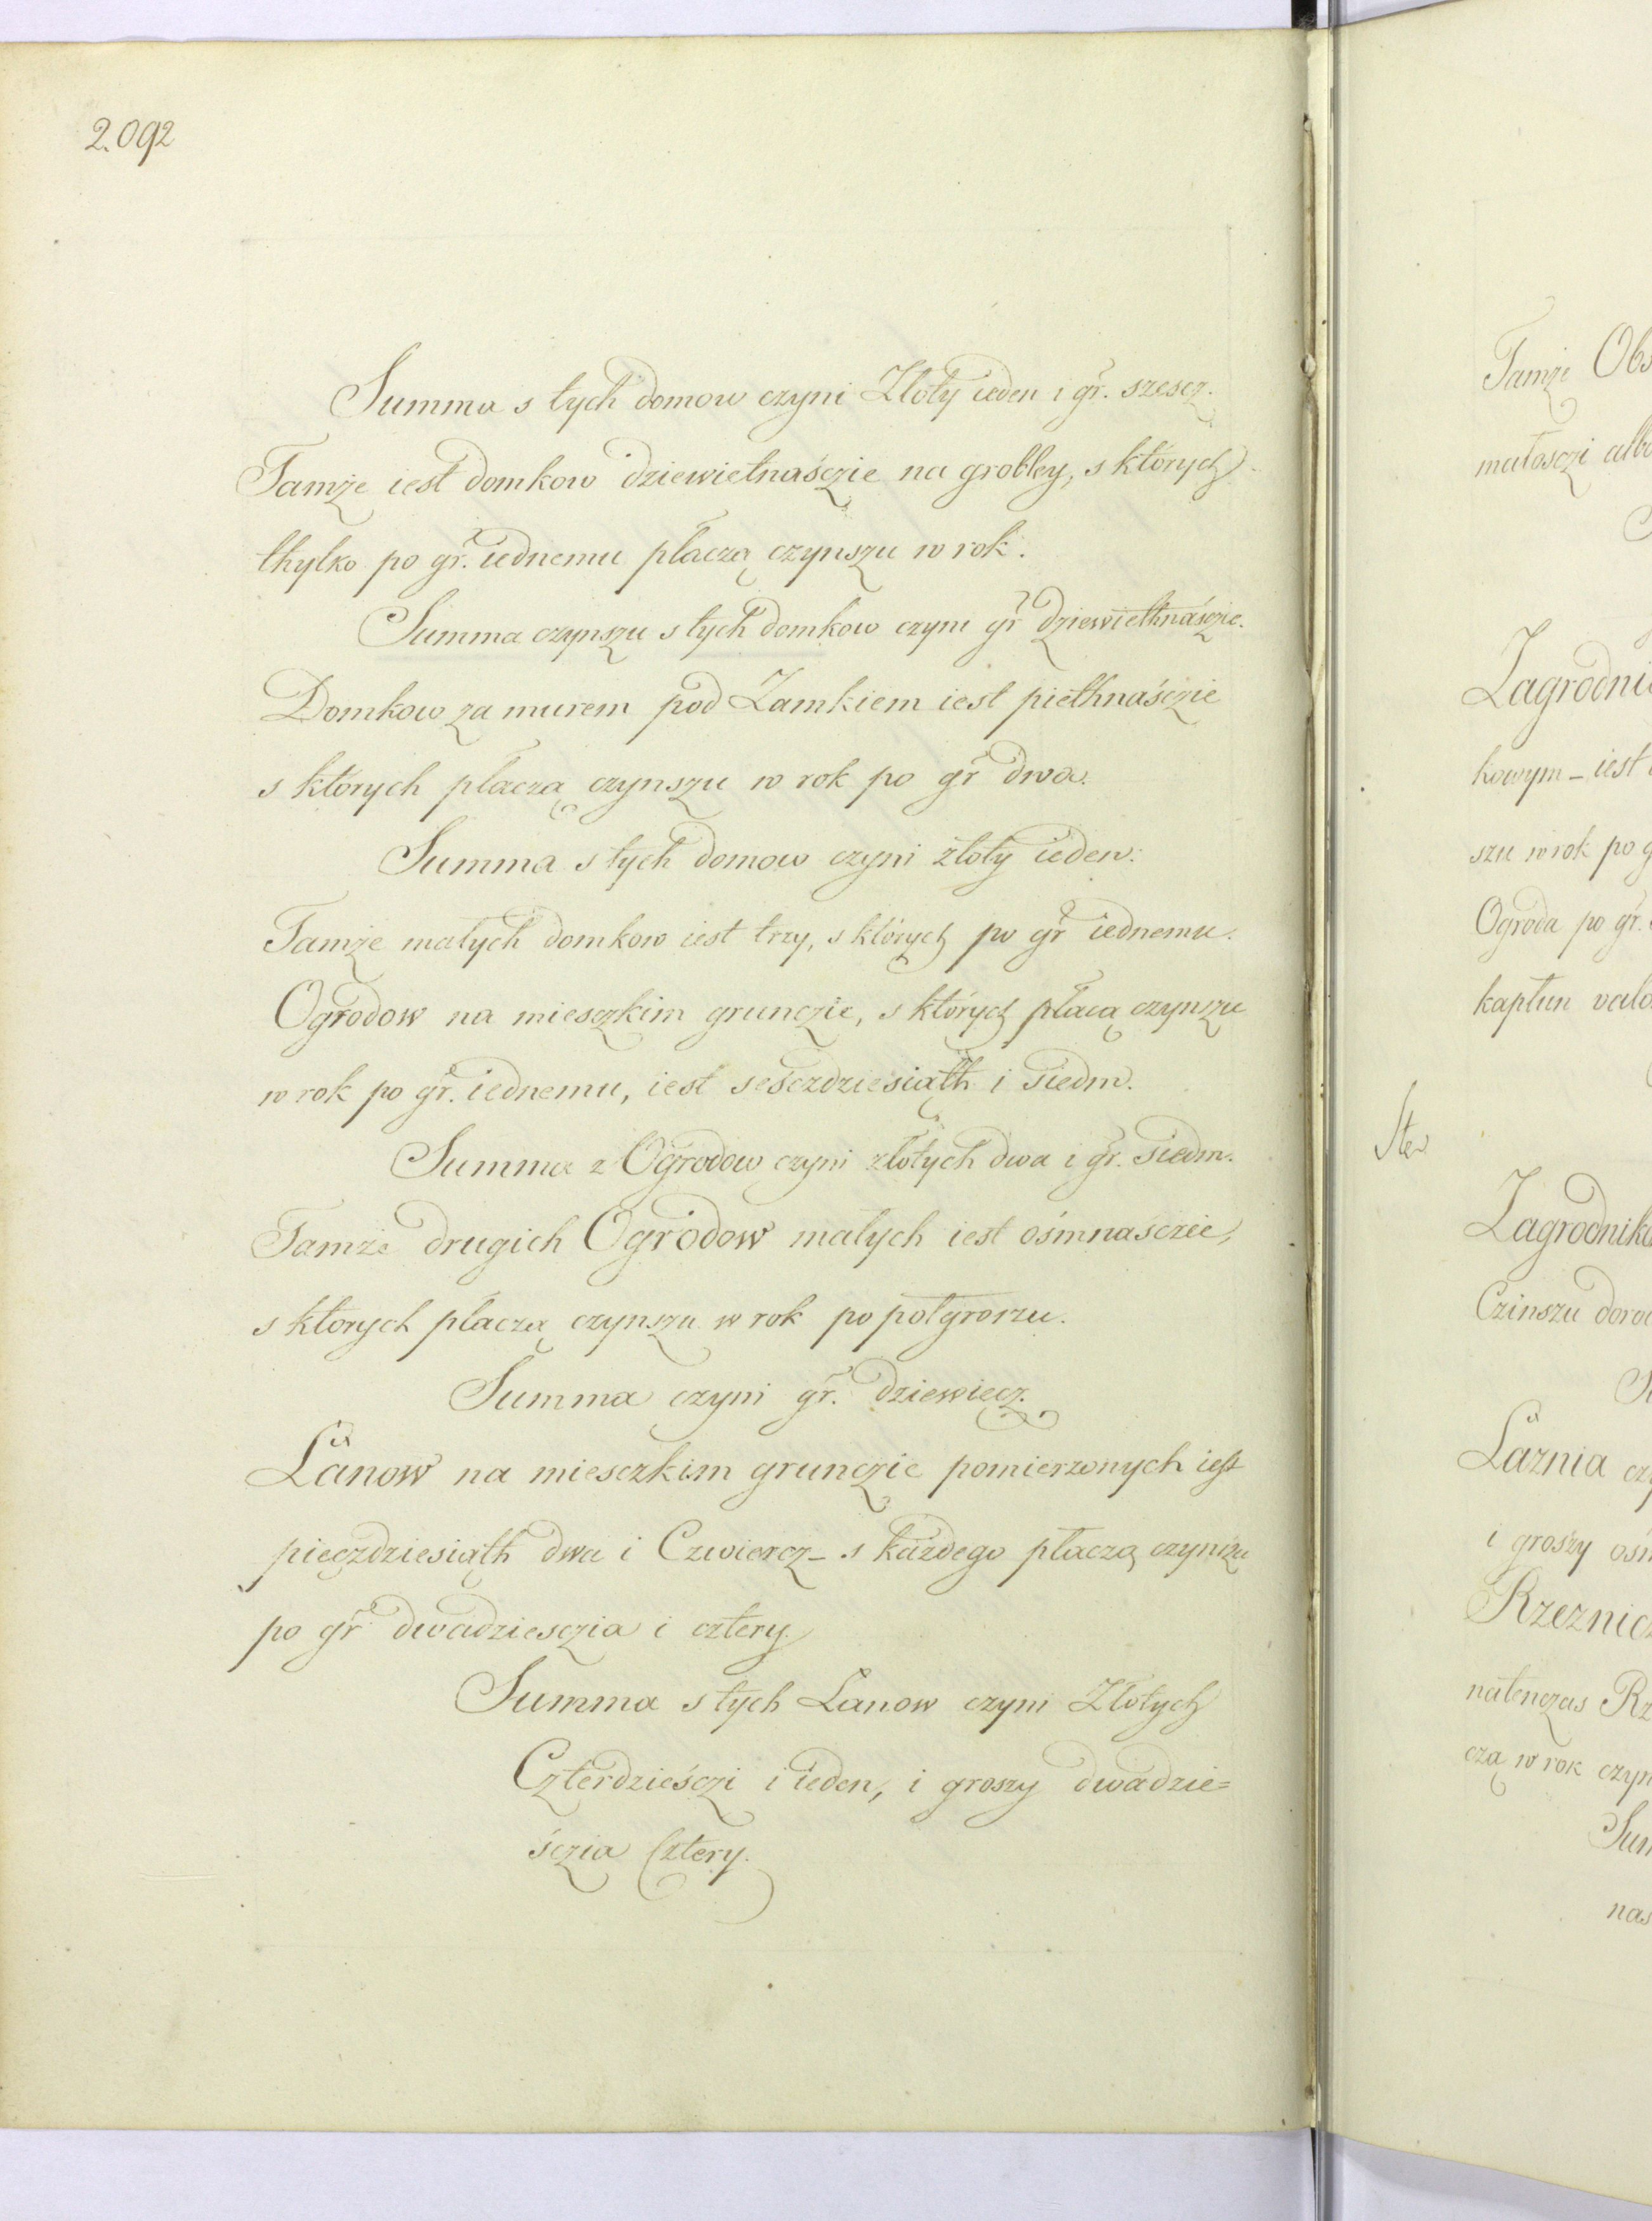 2.092
Summa s tych domow czyni Złoty ieden i gr. szescz.
Tamże iest domkow dziewietnaśczie na grobley, s których
thylko po gr. iednemu płaczą czynszu w rok.
Summa czynszu s tych domkow czyni gr dziewiethnaśczie.
Domkow za murem pod Zamkiem iest piethnaśczie
s których płaczą czynszu w rok po gr dwa.
Summa s tych domow czyni złoty ieden.
Tamże małych domkow iest trzy, s których po gr iednemu.
Ogrodow na miesczkim grunczie, s których płacą czynszu
w rok po gr. iednemu, iest seśczdziesiąth i siedm.
Summa z Ogrodow czyni złotych dwa i gr. siedm.
Tamże drugich Ogrodow małych iest ośmnasczie,
s ktorych płaczą czynszu w rok po połgroszu.
Summa czyni gr. dziewięcz.
Łanow na miesczkim grunczie pomierzonych iest
pięczdziesiąth dwa i Czwiercz_ s każdego płaczą czynszu
po gr dwadziesczia i cztery.
Summa s tych Łanow czyni Złotych
Czterdzieśczi i ieden, i groszy dwadzie=
śczia Cztery.
Tamże Obs
małosczi albo
Zagrodni
kowym_ iest
szu w rok po g
Ogroda po gr.
kapłun valo
Zagrodnik
Czinszu doro
Łaznia czy
i groszy ośm
Rzeznic
natenczas Rz
czą w rok czyn
Sum
nas